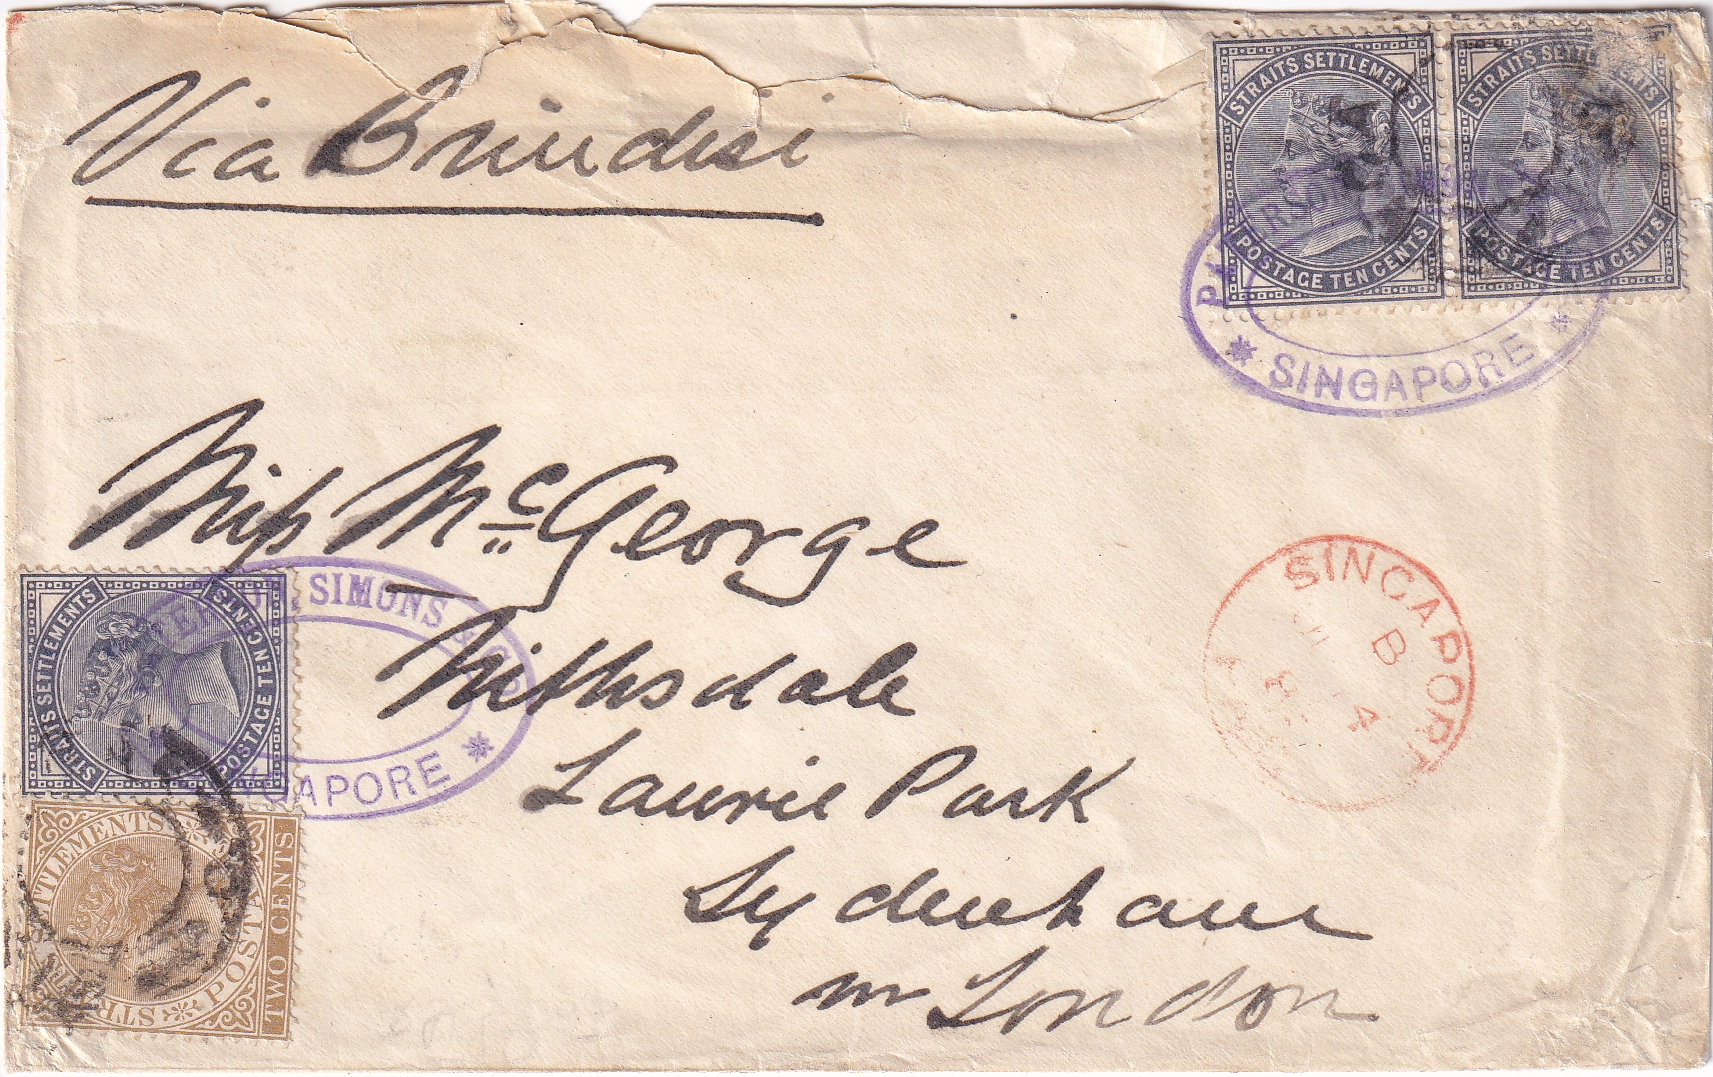 Via Brindisi
STRAITS SETTLEMENTS
POSTAGE TEN CENTS
STRAITS SETTLEMENTS
POSTAGE TEN CENTS
* SINGAPORE *
Miss McGeorge
Nithsdale
Laurie Park
Sydenham
nr London
STRAITS SETTLEMENTS
POSTAGE TEN CENTS
SIMONS & CO
SINGAPORE *
SETTLEMENTS
POSTAGE
TWO CENTS
SINGAPORE
B
4